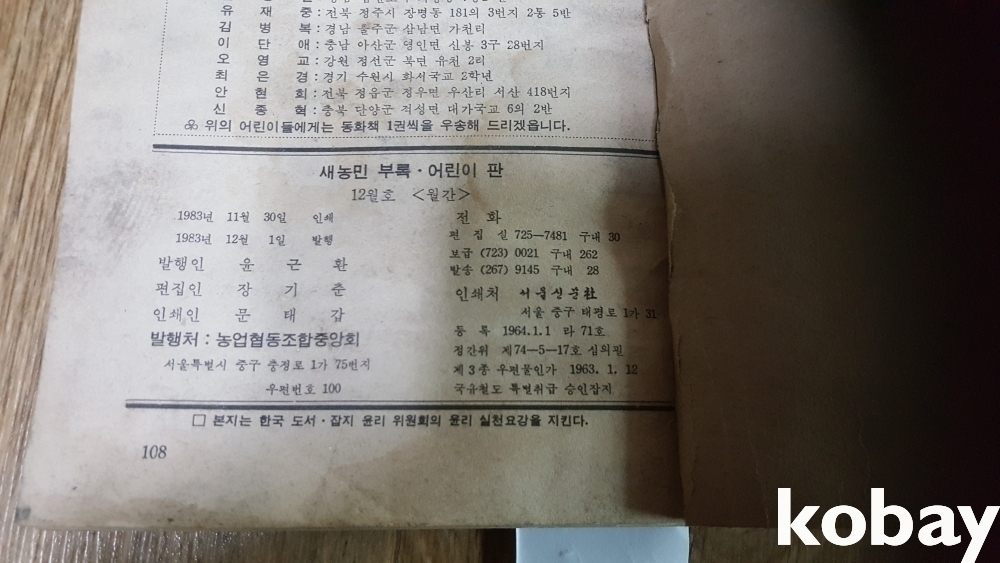 유 재 중 : 전북 정주시 장명동 181의 3번지 2통 5반
김 병 복 : 경남 울주군 삼남면 가천리
이 단 애 : 충남 아산군 영인면 신봉 3구 28번지
오 영 교 : 강원 정선군 북면 유천 2리
최 은 경 : 경기 수원시 화서국교 2학년
안 현 희 : 전북 정읍군 정우면 우산리 서산 418번지
신 종 혁 : 충북 단양군 적성면 대가국교 6의 2반
위의 어린이들에게는 동화책 1권씩을 우송해 드리겠읍니다.
새농민 부록·어린이 판
12월호 <월간>
1983년 11월 30일 인쇄
1983년 12월 1일 발행
발행인 윤 근 환
편집인 장 기 춘
인쇄인 문 태 갑
발행처 : 농업협동조합중앙회
서울특별시 중구 충정로 1가 75번지
우편번호 100
전 화
편 집 실 725—7481 구내 30
보급 (723) 0021 구내 262
발송 (267) 9145 구내 28
인쇄처 서울신문社
서울 중구 태평로 1가 31
등 록 1964.1.1 라 71호
정간위 제74—5—17호 심의필
제3종 우편물인가 1963. 1. 12
국유철도 특별취급 승인잡지
□ 본지는 한국 도서·잡지 윤리 위원회의 윤리 실천요강을 지킨다.
108
kobay